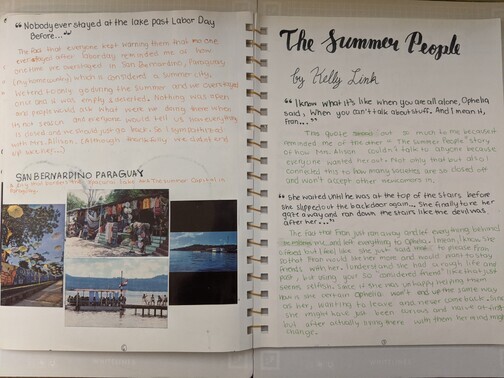 "Nobody ever stayed at the lake past Labor Day
Before..."
The fact that everyone kept warning them that no one
ever stayed after laborday reminded me of how
one time we overstayed in San Bernardino, Paraguay
(my hometown) which is considered a summer city.
We tend to only go during the summer and we overstayed
once and it was empty & deserted. Nothing was open
and people would ask what were we doing there when
is not season and everyone would tell us how everything
is closed and we should just go back. So I sympathized
with Mrs. Allison. (Although thankfully we didn't end
up like her)
SAN BERNARDINO PARAGUAY
City that borders the Ypacarai Lake and the Summer Capital in
Paraguay.
The Summer People
by Kelly Link
"I know what it's like when you are all alone, Ophelia
said, when you can't talk about stuff. And I mean it,
Fran..."
This quote stood out so much to me because
reminded me of the other "The Summer People" story
of how Mrs. Allison couldn't talk to anyone because
everyone wanted her out. Not only that but also I
connected this to how many societies are so closed off
and won't accept other newcomers in.
"She waited until he was at the top of the stairs before
she slipped out the backdoor again... She finally tore her
gaze away and ran down the stairs like the devil was
after her..."
The fact that Fran just ran away and left everything behind
me, and left everything to Ophelia. I know Ophelia
offered but I feel like she just said that to please Fran
so that Fran would like her more and would want to stay
friends with her. I understand she had a rough life and
past, but doing your so "considered friend" like that just
seems selfish, sure if she was unhappy helping them
how is she certain Ophelia won't end up the same way
as her, wanting to leave and never come back. Sure
she might have just been curious and naive at first
but after actually living there with them her mind might
change.